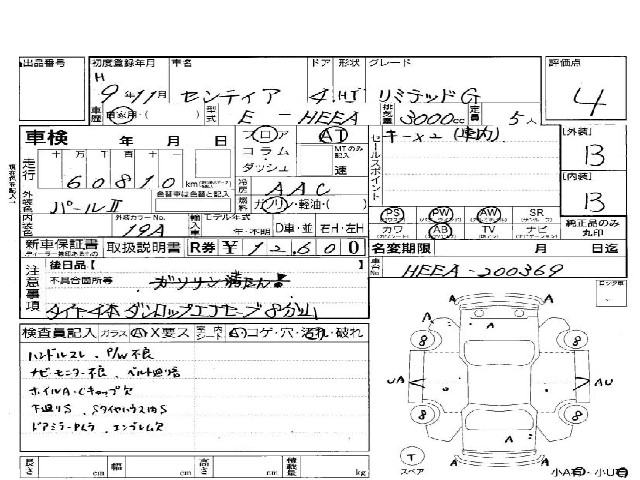 出品番号 初度登録年月 車名 ドア 形状 グレード 評価点
H 9年11月 センティア 4 HT リミテッドG 4
車歴 自家用・( ) 型式 E-HEEA 排気量 3000cc 定員 5人
車検 年 月 日 フロア AT キー×2(車内) [外装]
コラム・ MTのみ記入 セールスポイント B
走行 十万 万 千 百 十 一 ダッシュ 速
60810 km 冷房 AAC [内装]
外装色 パールⅡ 色替車は金替と記入 燃料 ガソリン・軽油・( ) B
外装カラーNo. 輸入車 モデル年式 PS PW AW SR
内装色 19A 年・不明 D車・並 右H・左H カワ AB TV ナビ 純正品のみ丸印
新車保証書 取扱説明書 R券 ¥12,600 名変期限 月 日迄
後日品【 】 車台No. HEEA-200369
注意事項 不具合箇所等 ガソリン満たん! ロック車
タイヤ4本ダンロップエコセーブ8分山
検査員記入 ガラス A X要ス 室内 シート A コゲ・穴・汚れ・破れ A
ハンドルスレ、P/W不良 8 8
ナビモニター不良、ベルト廻り音 A
ホイルA・Cキャップ欠 UA AU
下廻りS、Sタイヤハウス内S 8 8
ドアミラーPムラ、エンブレム欠 A A
T
スペア A
長さ cm 幅 cm 高さ cm 積載量 kg 小A有・小U有